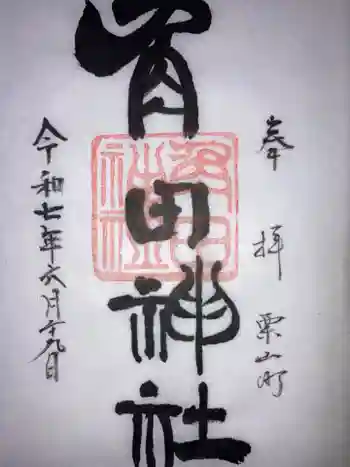 奉拝 栗山町
角田神社
令和七年六月十九日